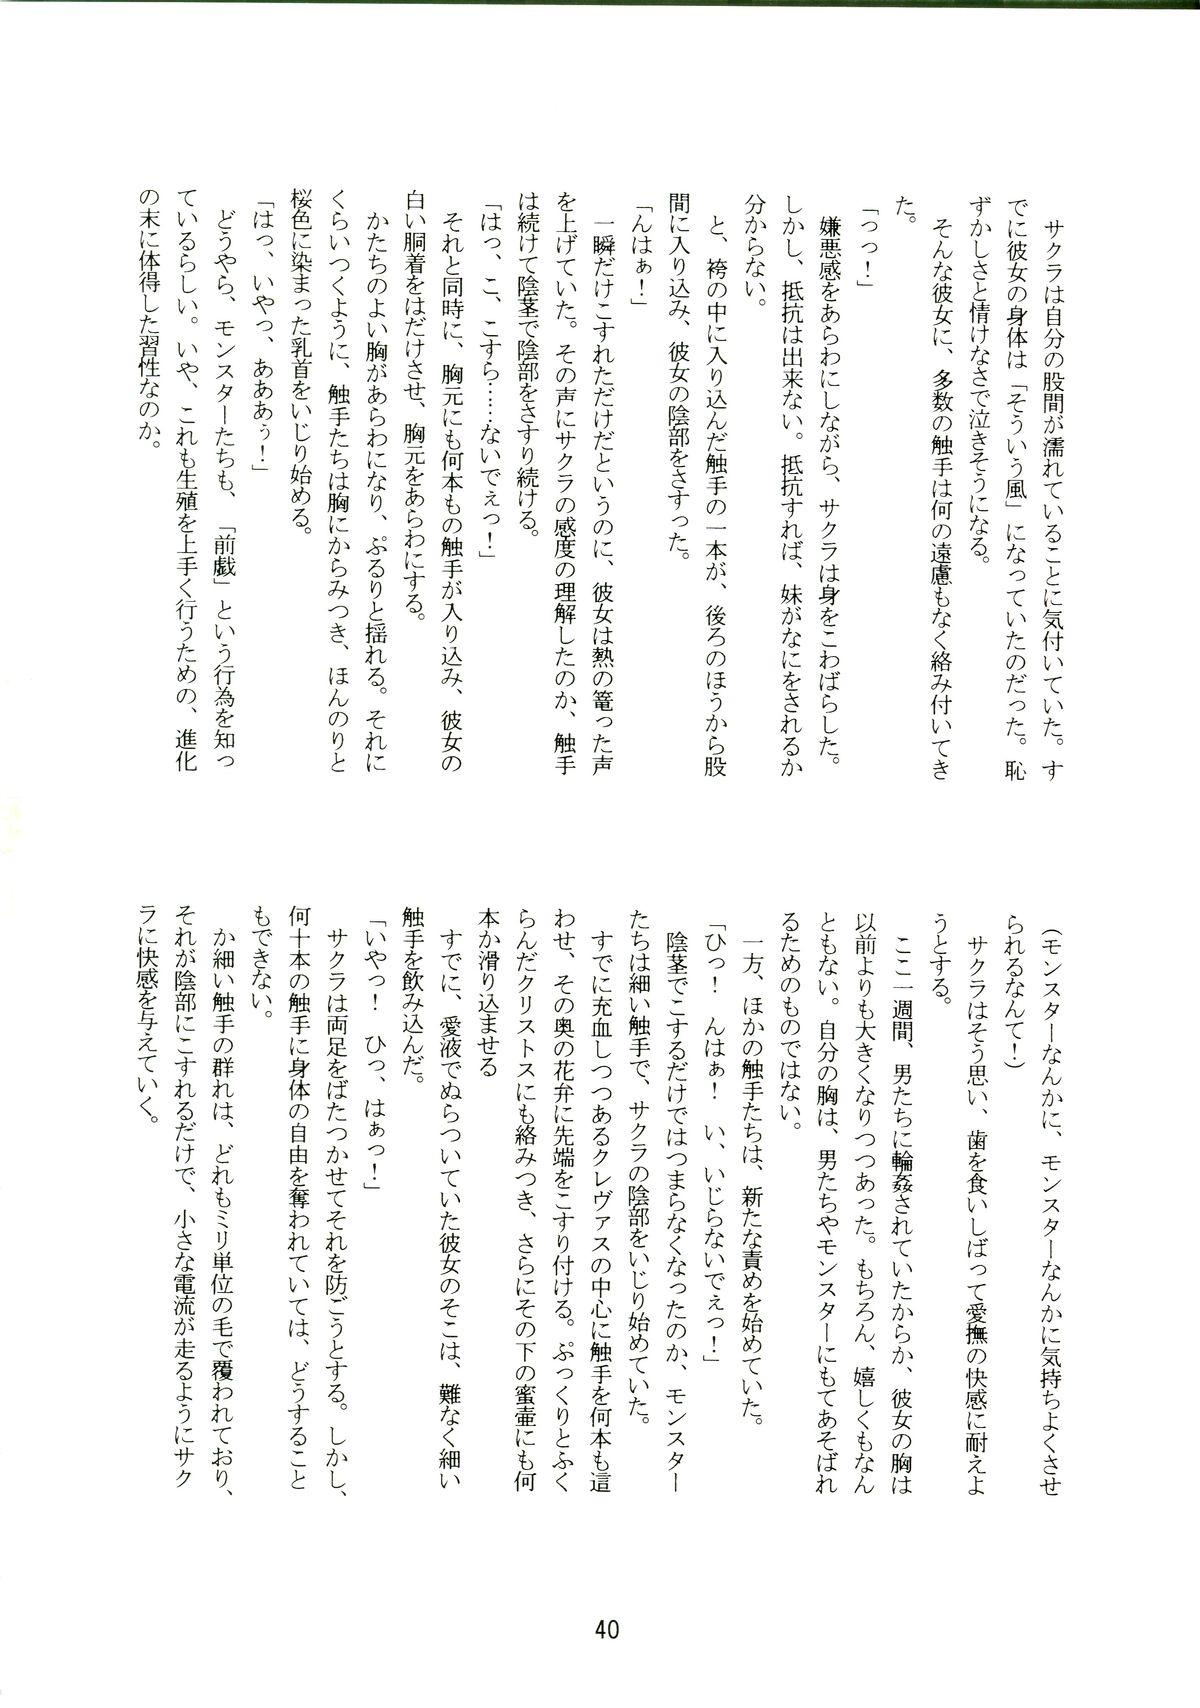 サクラは自分の股間が濡れていることに気付いていた。す
でに彼女の身体は「そういう風」になっていたのだった。恥
ずかしさと情けなさで泣きそうになる。
　そんな彼女に、多数の触手は何の遠慮もなく絡み付いてき
た。
「っっ！」
　嫌悪感をあらわにしながら、サクラは身をこわばらした。
しかし、抵抗は出来ない。抵抗すれば、妹がなにをされるか
分からない。
　と、袴の中に入り込んだ触手の一本が、後ろのほうから股
間に入り込み、彼女の陰部をさすった。
「んはぁ！」
　一瞬だけこすれただけだというのに、彼女は熱の篭った声
を上げていた。その声にサクラの感度の理解したのか、触手
は続けて陰茎で陰部をさすり続ける。
「はっ、こ、こすら……ないでぇっ！」
　それと同時に、胸元にも何本もの触手が入り込み、彼女の
白い胴着をはだけさせ、胸元をあらわにする。
　かたちのよい胸があらわになり、ぷるりと揺れる。それに
くらいつくように、触手たちは胸にからみつき、ほんのりと
桜色に染まった乳首をいじり始める。
「はっ、いやっ、あああぅ！」
　どうやら、モンスターたちも、「前戯」という行為を知っ
ているらしい。いや、これも生殖を上手く行うための、進化
の末に体得した習性なのか。
（モンスターなんかに、モンスターなんかに気持ちよくさせ
られるなんて！）
　サクラはそう思い、歯を食いしばって愛撫の快感に耐えよ
うとする。
　ここ一週間、男たちに輪姦されていたからか、彼女の胸は
以前よりも大きくなりつつあった。もちろん、嬉しくもなん
ともない。自分の胸は、男たちやモンスターにもてあそばれ
るためのものではない。
　一方、ほかの触手たちは、新たな責めを始めていた。
「ひっ！　んはぁ！　い、いじらないでぇっ！」
　陰茎でこするだけではつまらなくなったのか、モンスター
たちは細い触手で、サクラの陰部をいじり始めていた。
　すでに充血しつつあるクレヴァスの中心に触手を何本も這
わせ、その奥の花弁に先端をこすり付ける。ぷっくりとふく
らんだクリストスにも絡みつき、さらにその下の蜜壷にも何
本か滑り込ませる
　すでに、愛液でぬらついていた彼女のそこは、難なく細い
触手を飲み込んだ。
「いやっ！　ひっ、はぁっ！」
　サクラは両足をばたつかせてそれを防ごうとする。しかし、
何十本の触手に身体の自由を奪われていては、どうすること
もできない。
　か細い触手の群れは、どれもミリ単位の毛で覆われており、
それが陰部にこすれるだけで、小さな電流が走るようにサク
ラに快感を与えていく。
40